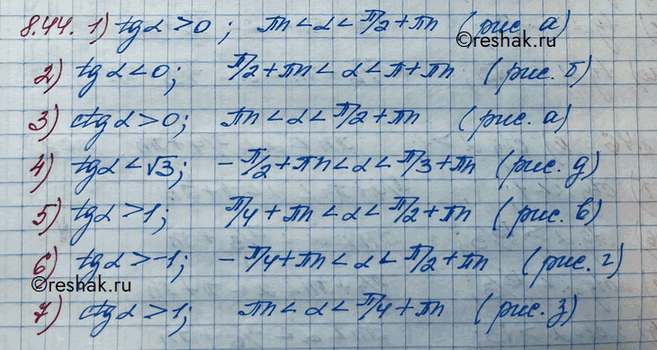 8.44. 1) tgα > 0; πn < α < π/2 + πn (рис. а)
©reshak.ru
2) tgα < 0; π/2 + πn < α < π + πn (рис. б)
3) ctgα > 0; πn < α < π/2 + πn (рис. а)
4) tgα < √3; -π/2 + πn < α < π/3 + πn (рис. д)
5) tgα > 1; π/4 + πn < α < π/2 + πn (рис. в)
6) tgα > -1; -π/4 + πn < α < π/2 + πn (рис. г)
©reshak.ru
7) ctgα > 1; πn < α < π/4 + πn (рис. з)